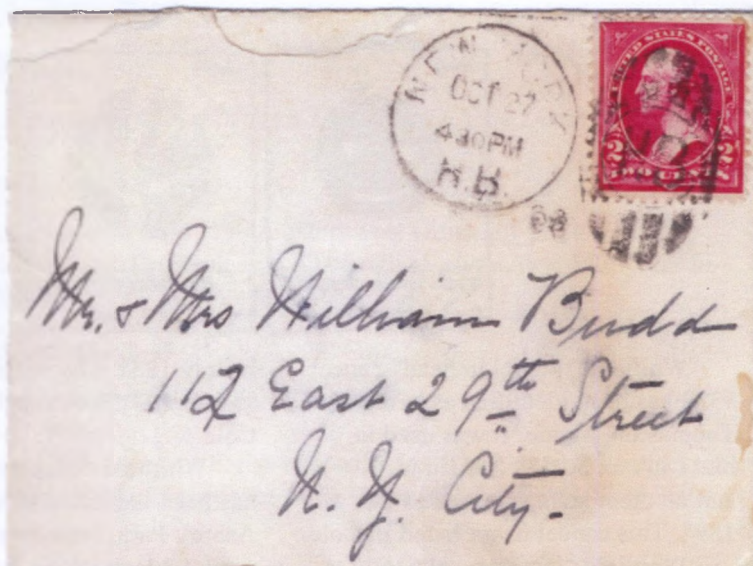 NEW YORK
OCT 27
430PM
H.B.
98
UNITED STATES POSTAGE
2 2
Mr. & Mrs William Budd
112 East 29th Street
N. Y. City.